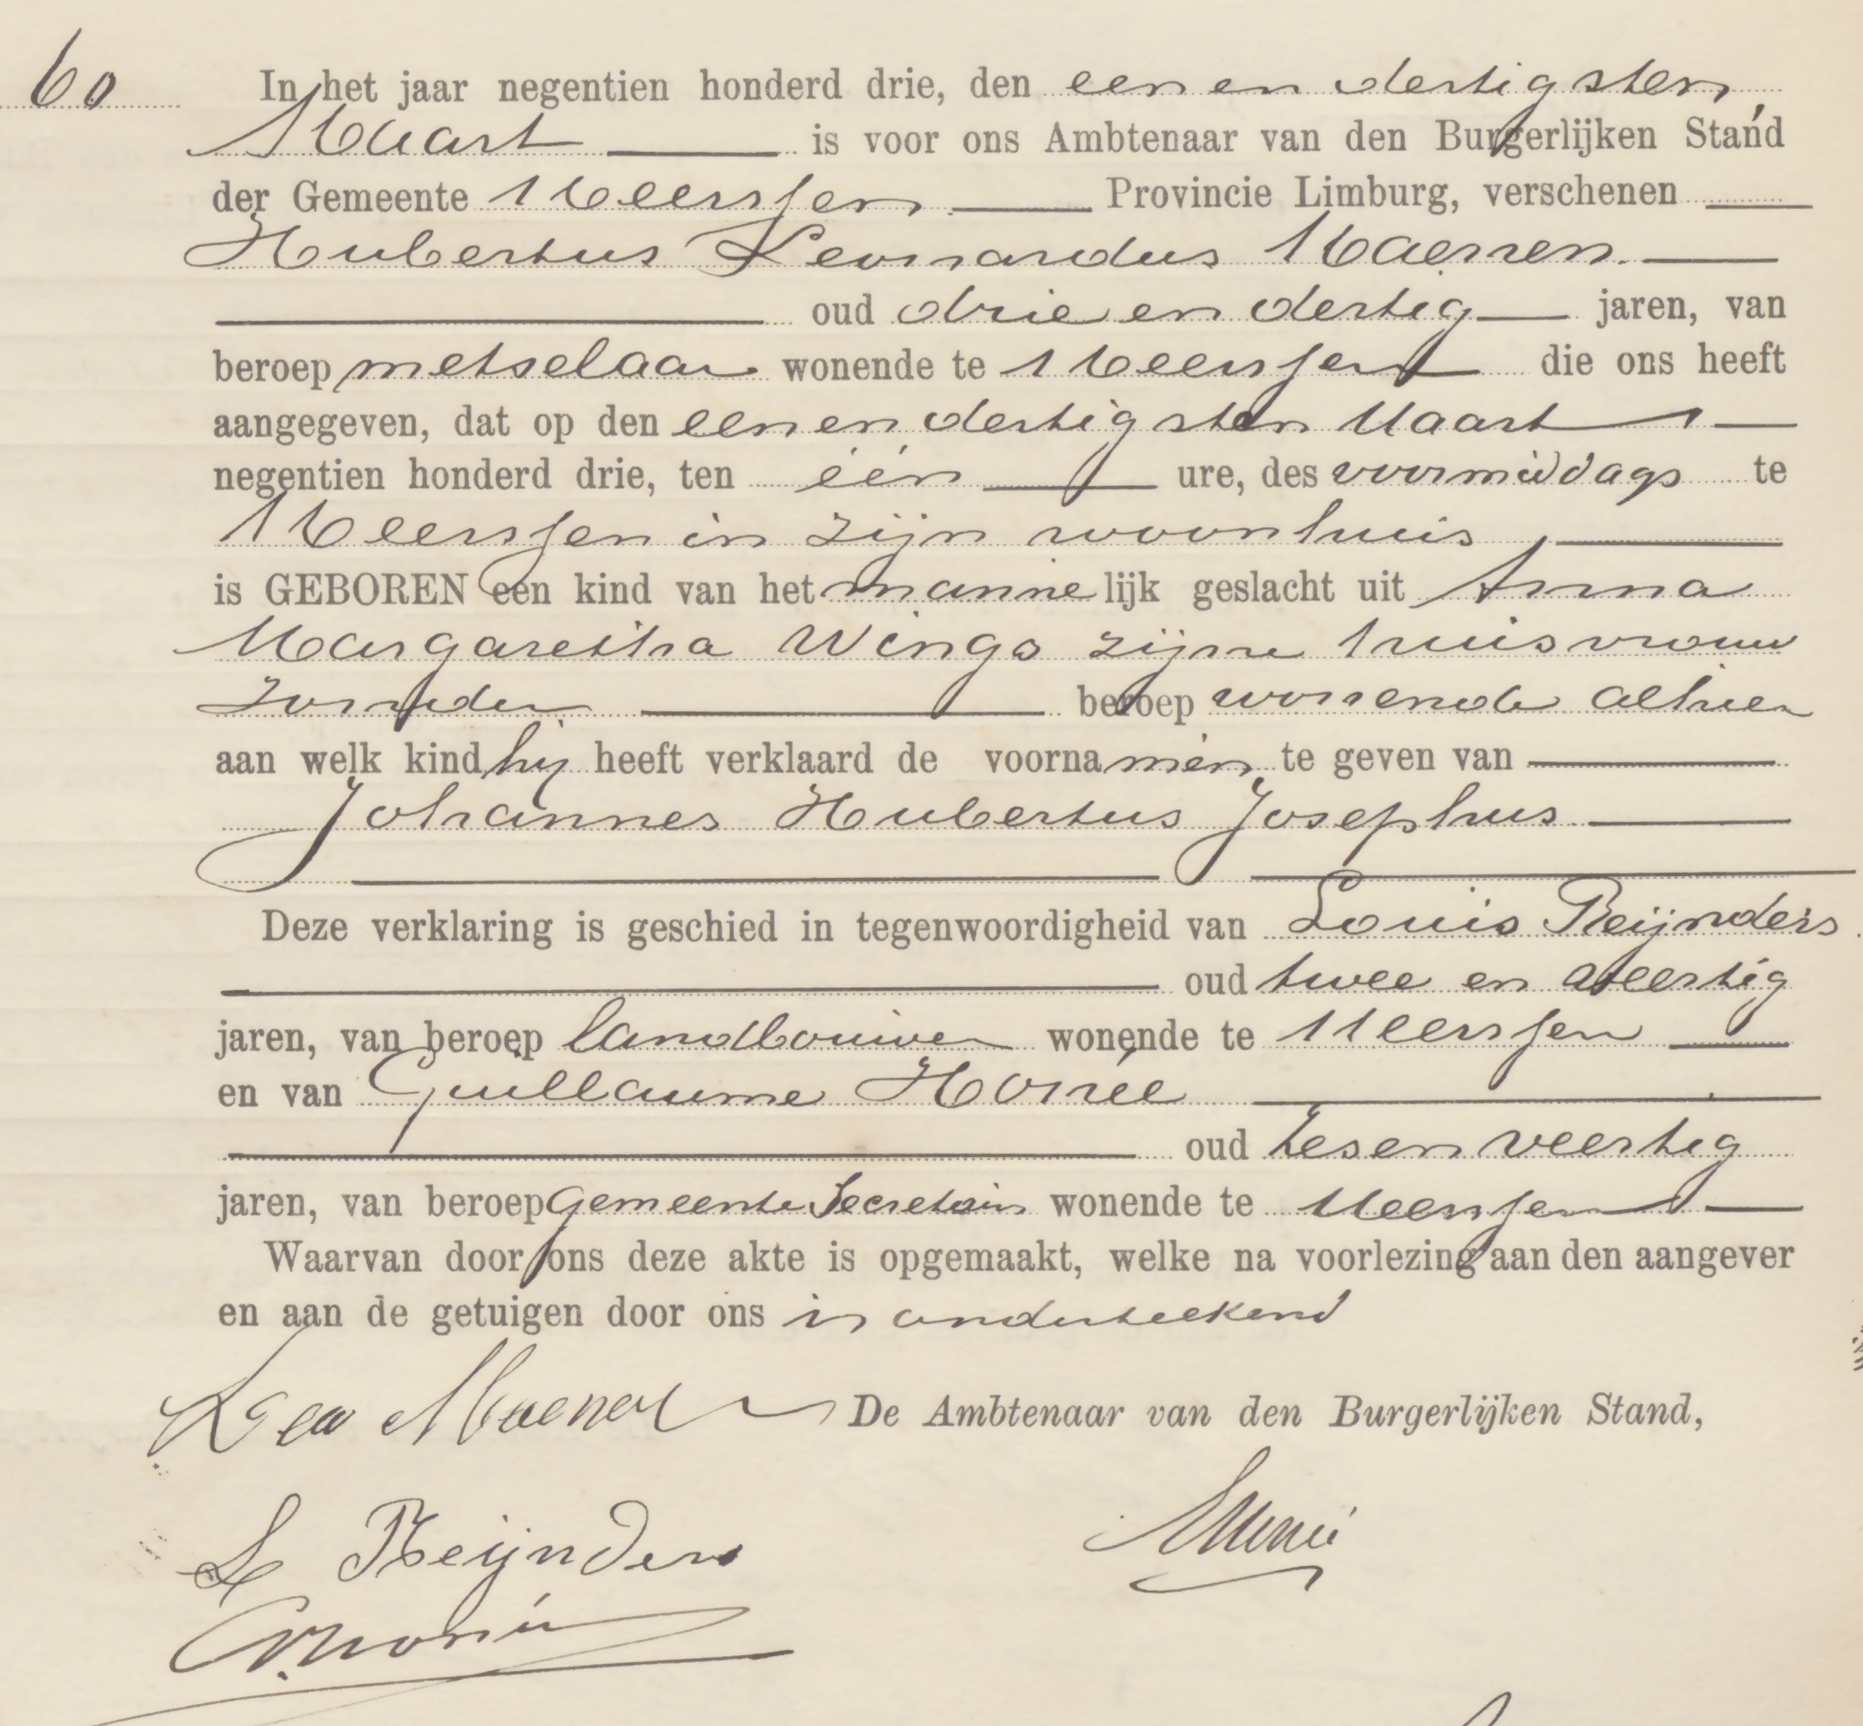 60 In het jaar negentien honderd drie, den een en dertigsten
Maart is voor ons Ambtenaar van den Burgerlijken Stand
der Gemeente Meerssen Provincie Limburg, verschenen
Hubertus Leonardus Maenen
oud drie en dertig jaren, van
beroep metselaar wonende te Meerssen die ons heeft
aangegeven, dat op den een en dertigsten Maart
negentien honderd drie, ten één ure, des voormiddags te
Meerssen in zijn woonhuis
is GEBOREN een kind van het mannelijk geslacht uit Anna
Margaretha Wings zijne huisvrouw
zonder beroep wonende alhier
aan welk kind hij heeft verklaard de voornamen te geven van
Johannes Hubertus Josephus
Deze verklaring is geschied in tegenwoordigheid van Louis Reijnders
oud twee en veertig
jaren, van beroep landbouwer wonende te Meerssen
en van Guillaume Honée
oud zesenveertig
jaren, van beroep gemeente Secretaris wonende te Meerssen
Waarvan door ons deze akte is opgemaakt, welke na voorlezing aan den aangever
en aan de getuigen door ons is onderteekend
Maenen De Ambtenaar van den Burgerlijken Stand,
L Reijnders